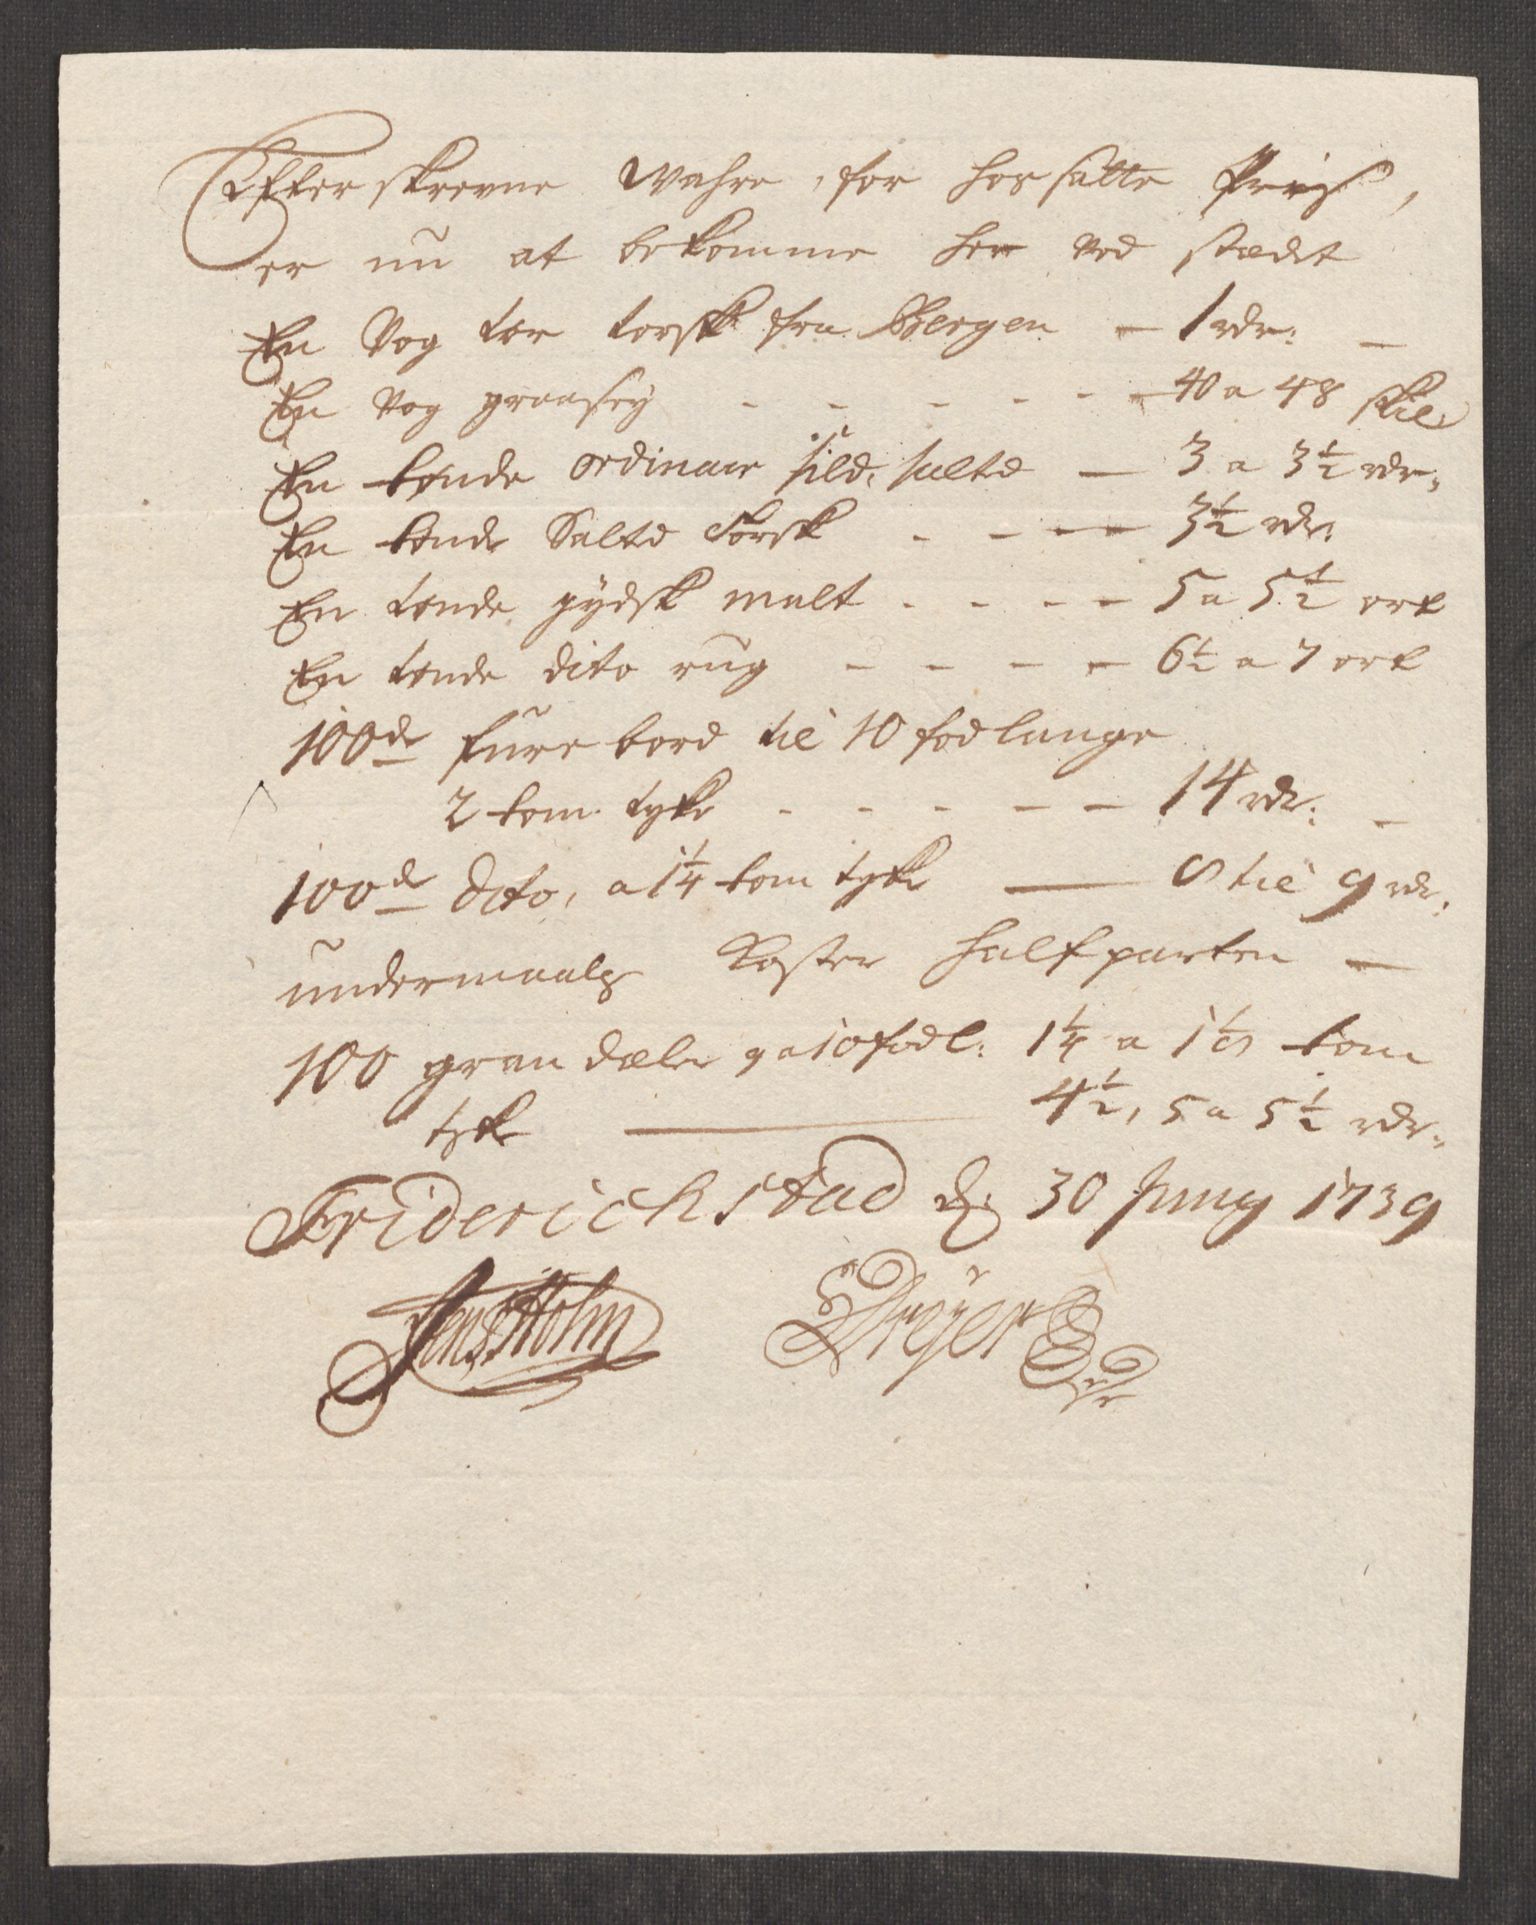 Efterskrevne Wahre, for hossatte Priis,
er nu at bekomme her ved stædet
En Vog tør torsk fra Bergen — 1 rdr: —
En Vog graasey - - - - - 40 a 48 skil
En tønde ordinair sild, saltd — 3 a 3½ rdr:
En tønde Saltd Torsk - - - - 3½ rdr:
En tønde jydsk malt - - - - 5 a 5½ ort
En tønde dito rug - - - - 6½ a 7 ort
100de fure bord til 10 fod lange
2 tom. tyke - - - - - 14 rdr: —
100de dito, a 1¼ tom tyke — 8 til 9 rdr:
undermaals Koster halfparten —
100 gran dæler 9 a 10 fod l: 1¼ a 1½ tom
tyke — 4½, 5 a 5½ rdr:
Friderichstad d: 30 Juny 1739
Jens Holm Dreyer